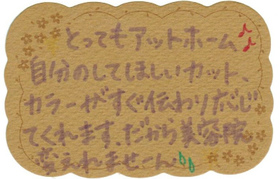 とってもアットホーム♪
自分のしてほしいカット、
カラーがすぐ伝わり応じ
てくれます。だから美容院
変えれませーん!!